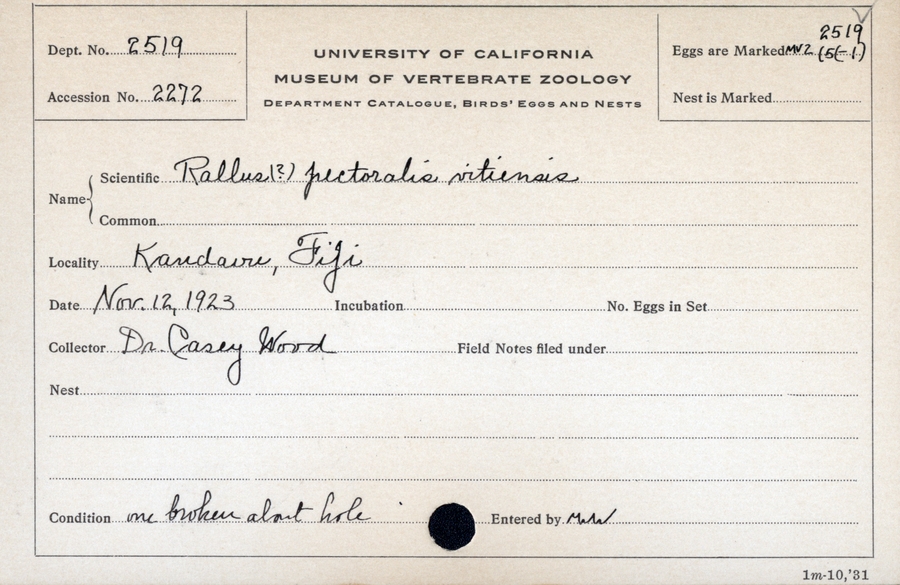 Dept. No. 2519
Accession No. 2272
UNIVERSITY OF CALIFORNIA
MUSEUM OF VERTEBRATE ZOOLOGY
DEPARTMENT CATALOGUE, BIRDS' EGGS AND NESTS
2519
Eggs are Marked MVZ (5(-1)
Nest is Marked
Name
Scientific Rallus(?) pectoralis vitiensis
Common
Locality Kandavu, Fiji
Date Nov. 12, 1923 Incubation No. Eggs in Set
Collector Dr. Casey Wood Field Notes filed under
Nest
Condition one broken about hole Entered by
1m-10,'31